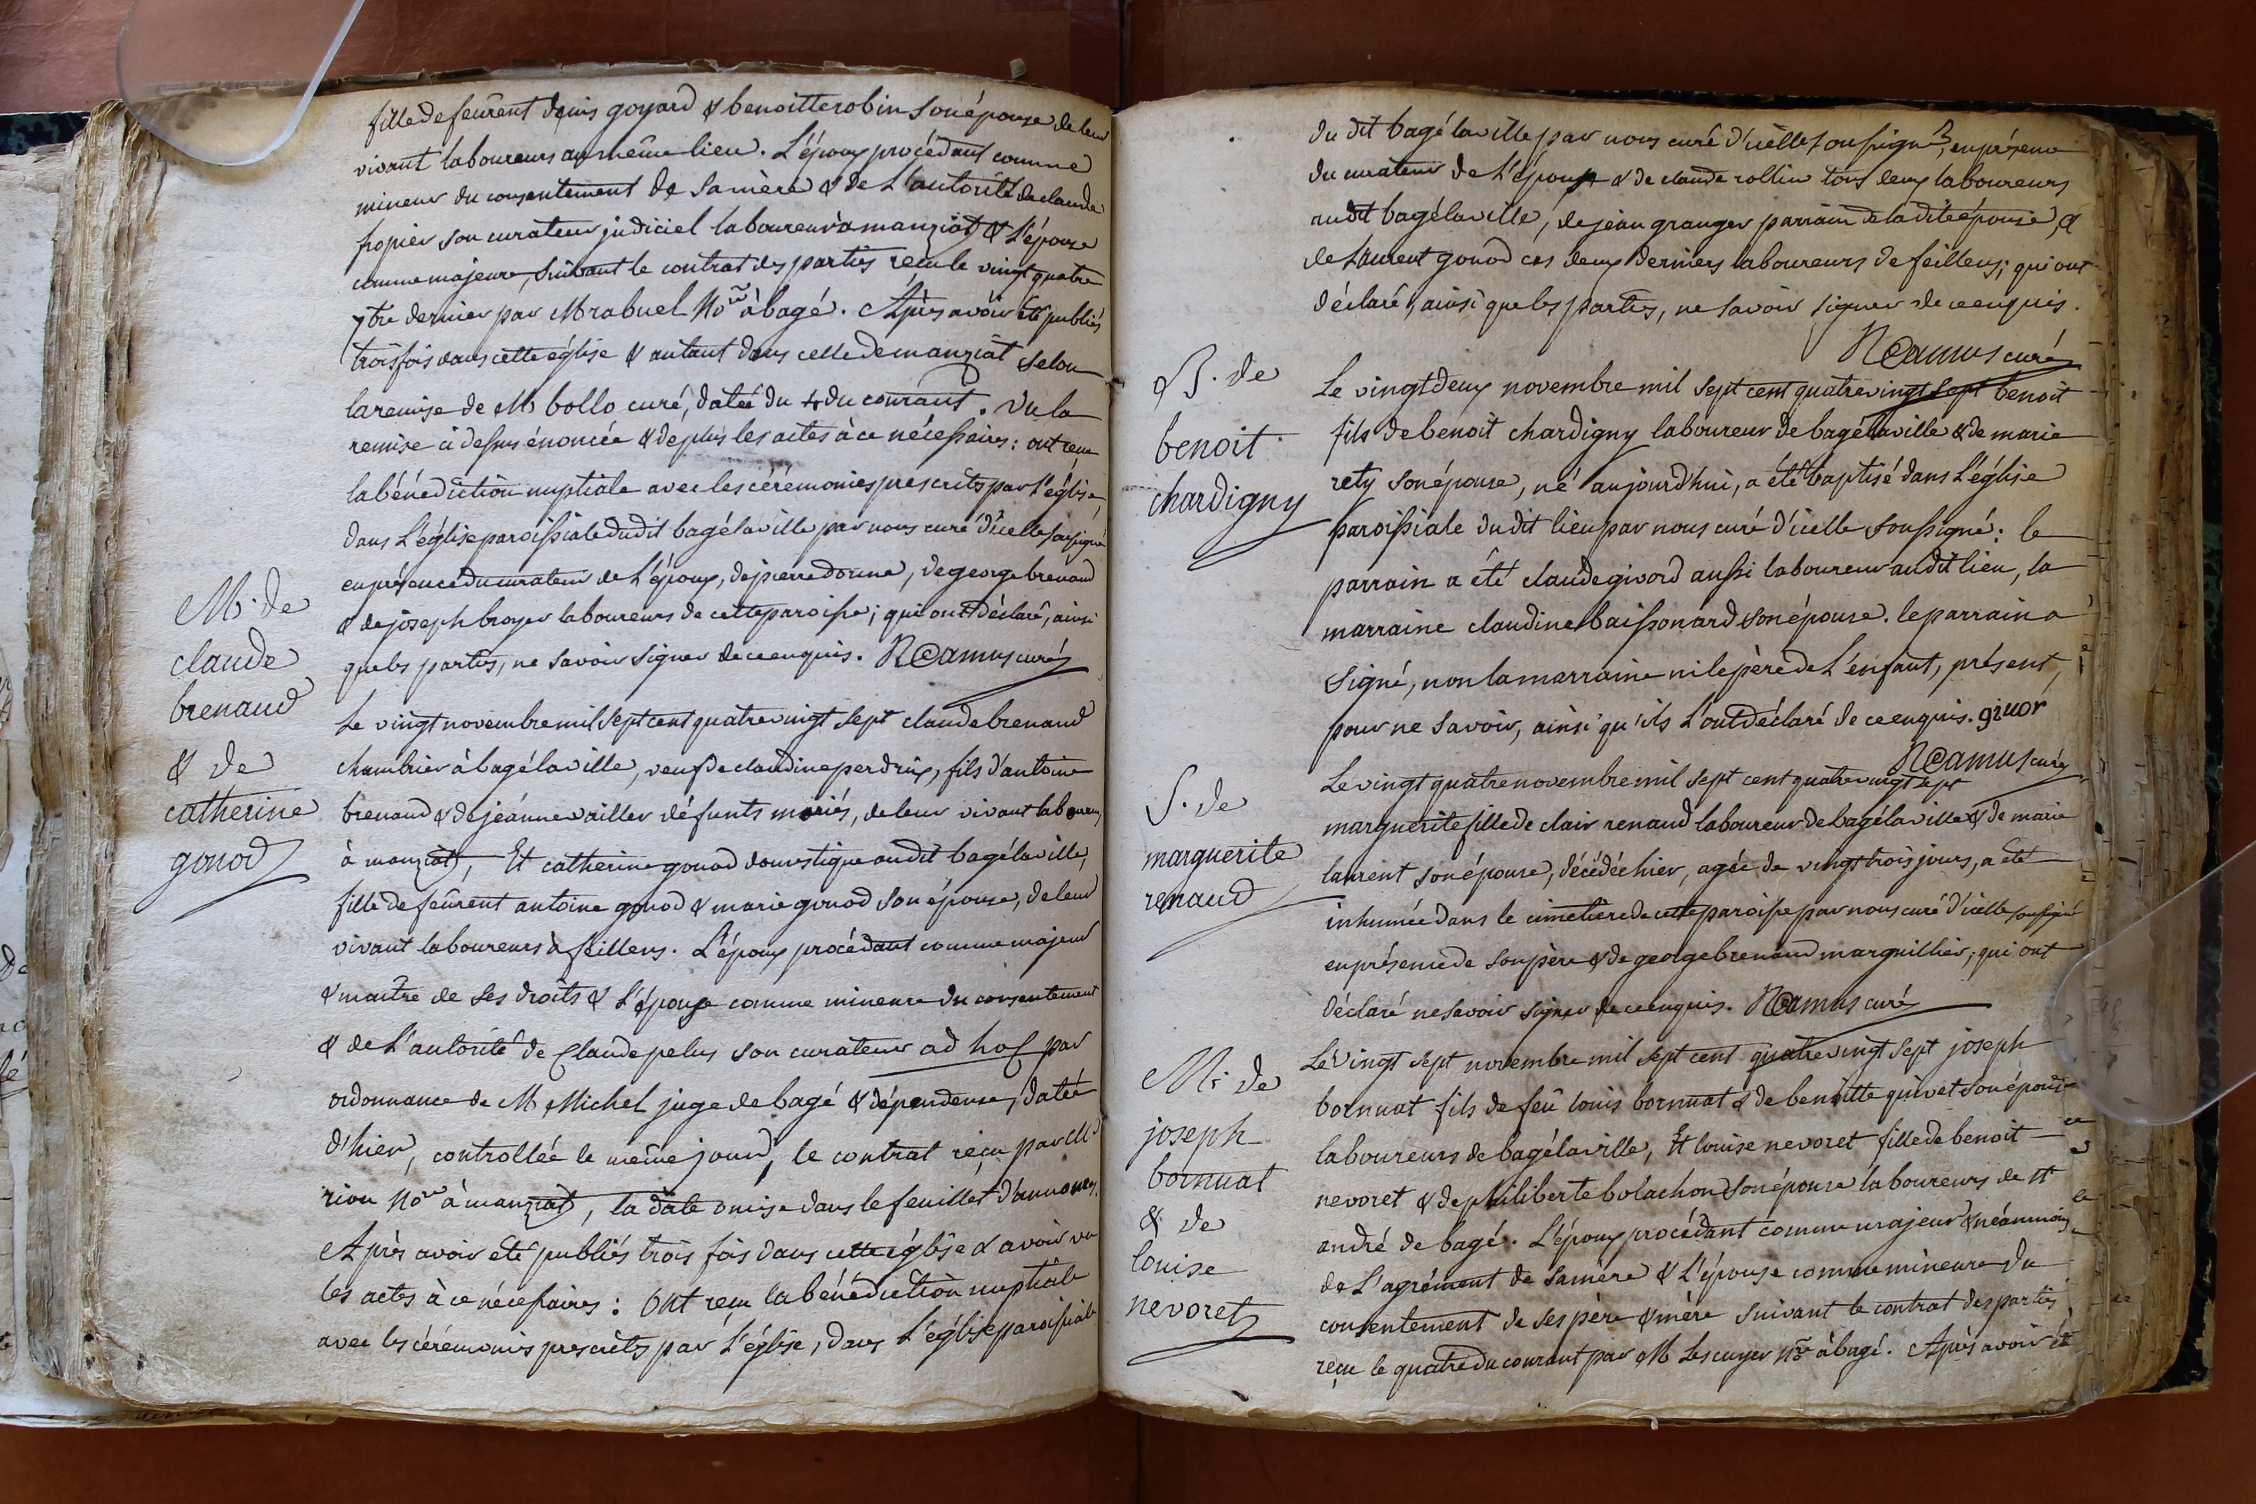 fille de feûrent denis goyard & benoitte robin son épouse, de leur
vivant laboureurs au même lieu. L'époux procédant comme
mineur du consentement de sa mère & de L'autorité de claude
fropier son curateur judiciel laboureur à manziat, & L'épouse
comme majeure, suivant le contrat des parties reçu le vingt quatre
7bre dernier par M rabuel Nore à bagé. Après avoir été publiés
trois fois dans cette église & autant dans celle de manziat selon
la remise de M bollo curé, datée du 4 du courant. Vu la
remise ci dessus énoncée & de plus les actes à ce nécessaires: ont reçu
la bénédiction nuptiale avec les cérémonies prescrits par L'église,
dans L'église paroissiale dudit bagé la ville par nous curé d'icelle soussigné
en présence du curateur de L'époux, de pierre donne, de george brenaud
& de joseph broyer laboureurs de cette paroisse; qui ont déclaré, ainsi
que les parties, ne savoir signer de ce enquis. RCamus curé
M. de
claude
brenaud
& de
catherine
gonod
Le vingt novembre mil sept cent quatre vingt sept claude brenaud
chambrier à bagé la ville, veuf de claudine perdrix, fils d'antoine
brenaud & de jeanne vailler défunts mariés, de leur vivant laboureurs
à manziat, Et catherine gonod domestique audit bagé la ville,
fille de feûrent antoine gonod & marie gonod son épouse, de leur
vivant laboureurs à feillens. L'époux procédant comme majeur
& maître de ses droits & L'épouse comme mineure du consentement
& de L'autorité de Claude pelus son curateur ad hoc par
ordonnance de M Michel juge de bagé & dépendense, datée
d'hier, controllée le même jour, le contrat reçu par M
rion Nore à manziat, la date omise dans le feuillet d'annonces.
Après avoir été publiés trois fois dans cette église & avoir vu
les actes à ce nécessaires: Ont reçu la bénédiction nuptiale
avec les cérémonies prescrits par L'église, dans L'église paroissiale
du dit bagé la ville par nous curé d'icelle soussigné, en présence
du curateur de L'époux & de claude rollin tous deux laboureurs
audit bagé la ville, de jean granger parrain de la dite épouse, &
de Laurent gonod ces deux derniers laboureurs de feillens; qui ont
déclaré, ainsi que les parties, ne savoir signer de ce enquis.
RCamus curé
B. de
benoit
chardigny
Le vingt deux novembre mil sept cent quatre vingt sept benoit
fils de benoit chardigny laboureur de bagé la ville & de marie
rety son épouse, né aujourd'hui, a été baptisé dans L'église
paroissiale du dit lieu par nous curé d'icelle soussigné: le
parrain a été claude givord aussi laboureur audit lieu, la
marraine claudine baissonard son épouse. le parrain a
signé, non la marraine ni le père de L'enfant, présent,
pour ne savoir, ainsi qu'ils L'ont déclaré de ce enquis. givor
RCamus curé
S. de
marguerite
renaud
Le vingt quatre novembre mil sept cent quatre vingt sept
marguerite fille de clair renaud laboureur de bagé la ville & de marie
laurent son épouse, décédée hier, agée de vingt trois jours, a été
inhumée dans le cimetière de cette paroisse par nous curé d'icelle soussigné
en présence de son père & de george brenaud marguillier; qui ont
déclaré ne savoir signer de ce enquis. RCamus curé
M. de
joseph
bornuat
& de
louise
nevoret
Le vingt sept novembre mil sept cent quatre vingt sept joseph
bornuat fils de feû louis bornuat & de benoitte quivet son épouse
laboureurs de bagé la ville, Et louise nevoret fille de benoit
nevoret & de philiberte bolachon son épouse laboureurs de st
andré de bagé. L'époux procédant comme majeur & néanmoins
de L'agrément de sa mère & L'épouse comme mineure du
consentement de ses père & mère suivant le contrat des parties
reçu le quatre du courant par M Lescuyer Nore à bagé. Après avoir été